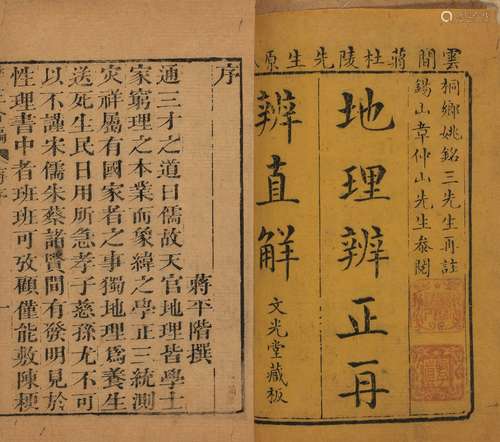 雲間蔣杜陵先生原
桐鄉姚銘三先生再註
錫山章仲山先生叅閱
地理辨正再
辨直解
文光堂藏板
序
蔣平階撰
通三才之道曰儒故天官地理皆學士
家窮理之本業而象緯之學正三統測
災祥屬有國家者之事獨地理爲養生
送死生民日用所急孝子慈孫尤不可
以不謹宋儒朱蔡諸賢間有發明見於
性理書中者班班可攷顧僅能敷陳梗